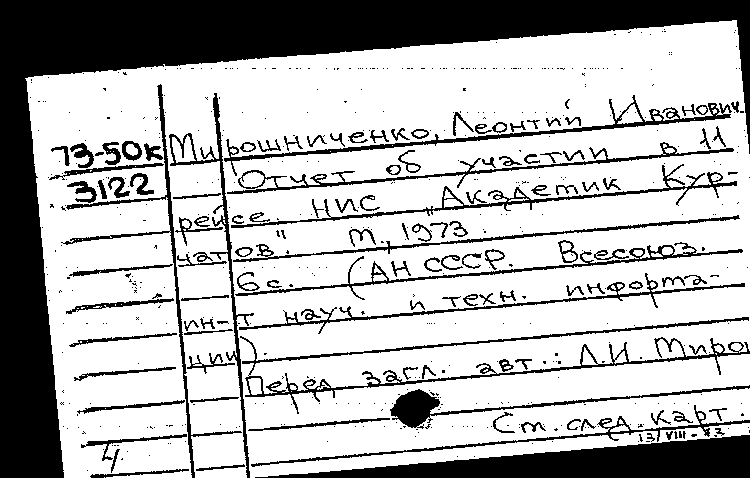 73-50к Мирошниченко, Леонтий Иванович.
3122 Отчет об участии в 11
рейсе НИС "Академик Кур-
чатов". М., 1973.
6 с. (АН СССР. Всесоюз.
ин-т науч. и техн. информа-
ции).
Перед загл. авт.: Л.И. Миро
См. след. карт.
13/VIII-73
4